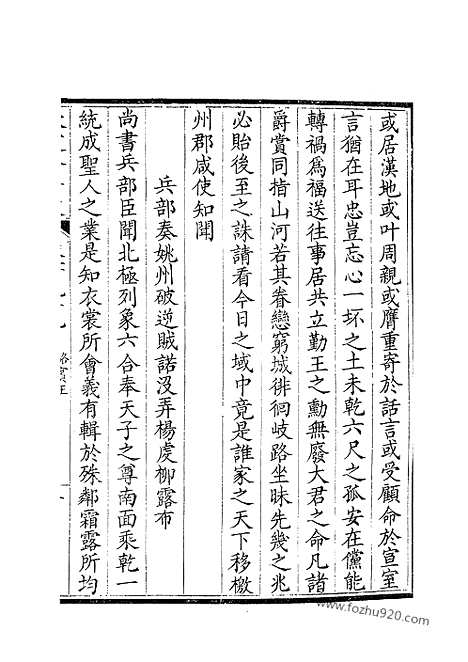 或居漢地或叶周親或膺重寄於話言或受顧命於宣室
言猶在耳忠豈忘心一坏之土未乾六尺之孤安在儻能
轉禍爲福送往事居共立勤王之勳無廢大君之命凡諸
爵賞同指山河若其眷戀窮城徘徊岐路坐昧先幾之兆
必貽後至之誅請看今日之域中竟是誰家之天下移檄
州郡咸使知聞
兵部奏姚州破逆賊諾沒弄楊虔柳露布
尚書兵部臣聞北極列象六合奉天子之尊南面乘乾一
統成聖人之業是知衣裳所會義有輯於殊鄰霜露所均
www.fozhu920.com